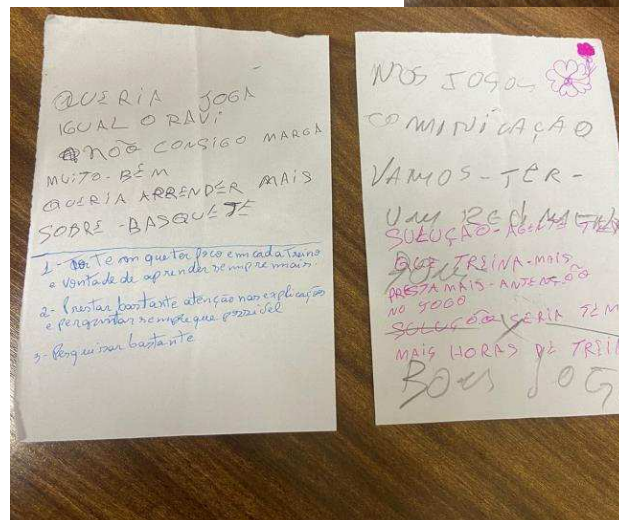 QUERIA JOGÁ
IGUAL O RAVI
NÃO CONSIGO MARGA
MUITO-BEM
QUERIA APRENDER MAIS
SOBRE-BASQUETE
1- Tem que ter foco em cada treino
e vontade de aprender sempre mais
2- Prestar bastante atenção nas explicações
e perguntar sempre que possível
3- Pesquisar bastante
NOS JOGOS
COMINICAÇÃO
VAMOS-TER-
UM
SOLUÇÃO-AGENTE
QUE TREINA-MAIS
PRESTA MAIS-ANTENÇÃO
NO JOGO
SOLUÇÃO SERIA TEM
MAIS HORAS DE TREI
BOM JOG